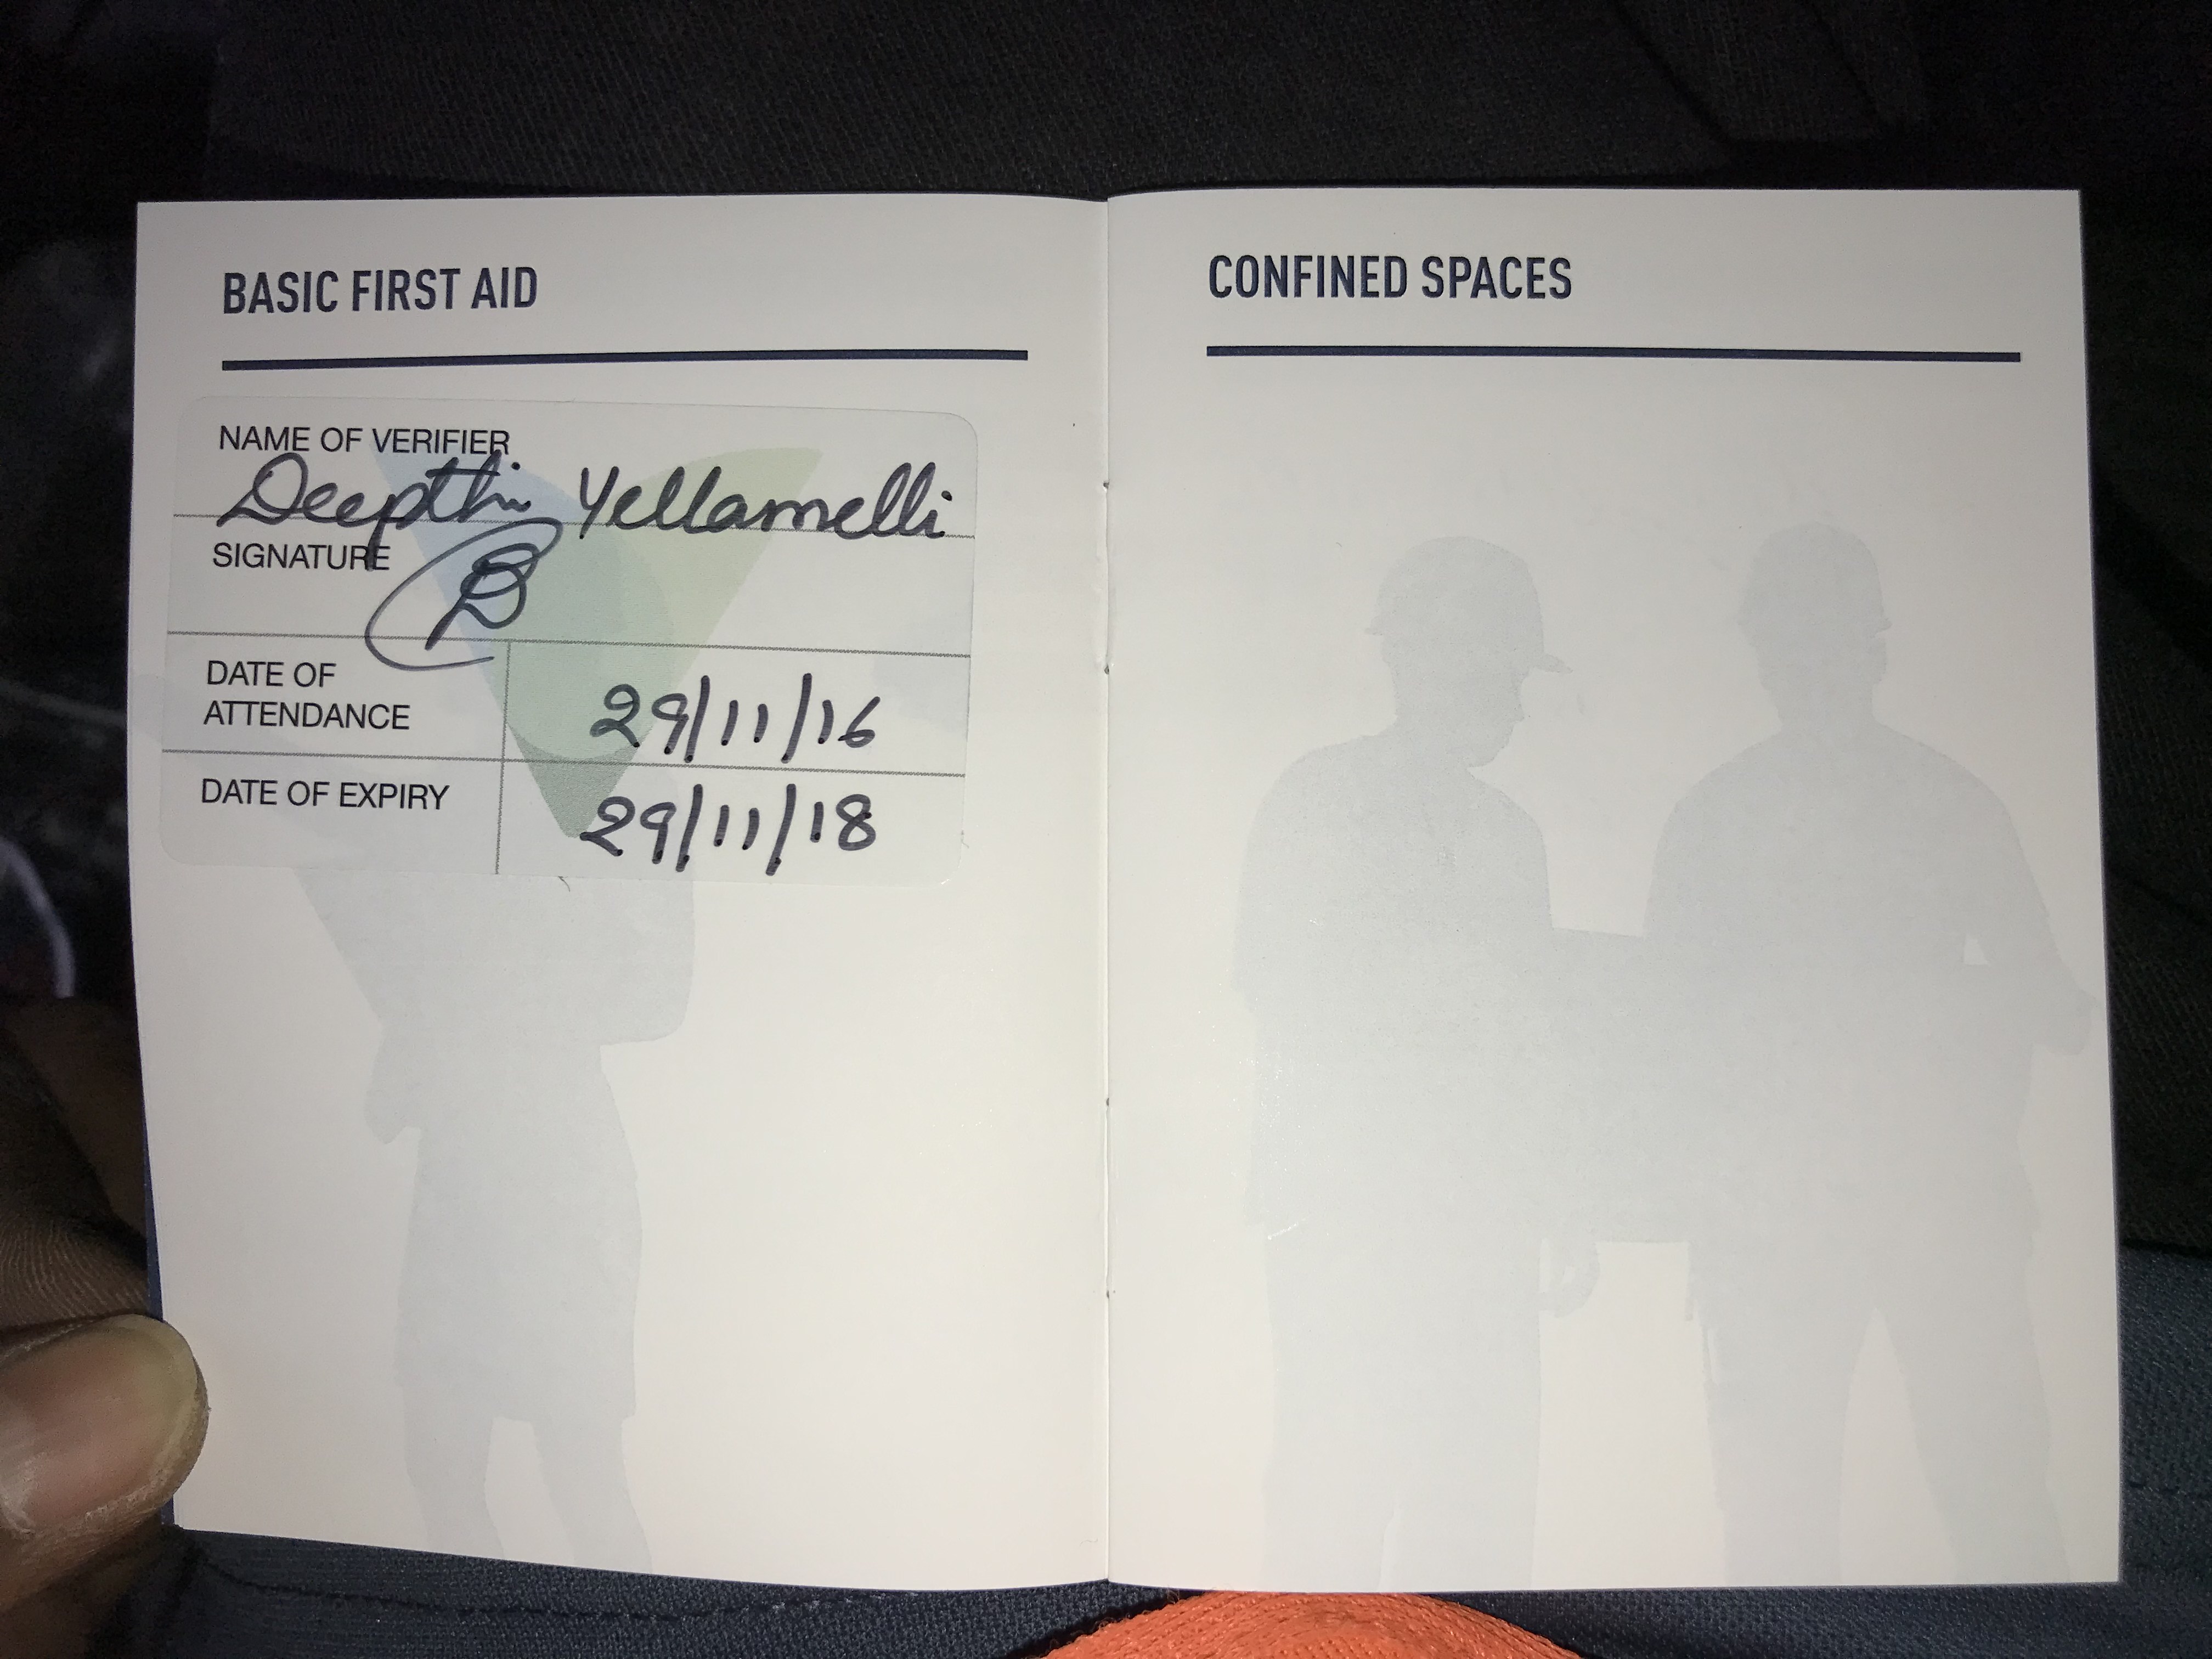 BASIC FIRST AID
NAME OF VERIFIER
Deepthi Yellamelli
SIGNATURE
DATE OF
ATTENDANCE
29/11/16
DATE OF EXPIRY
29/11/18
CONFINED SPACES